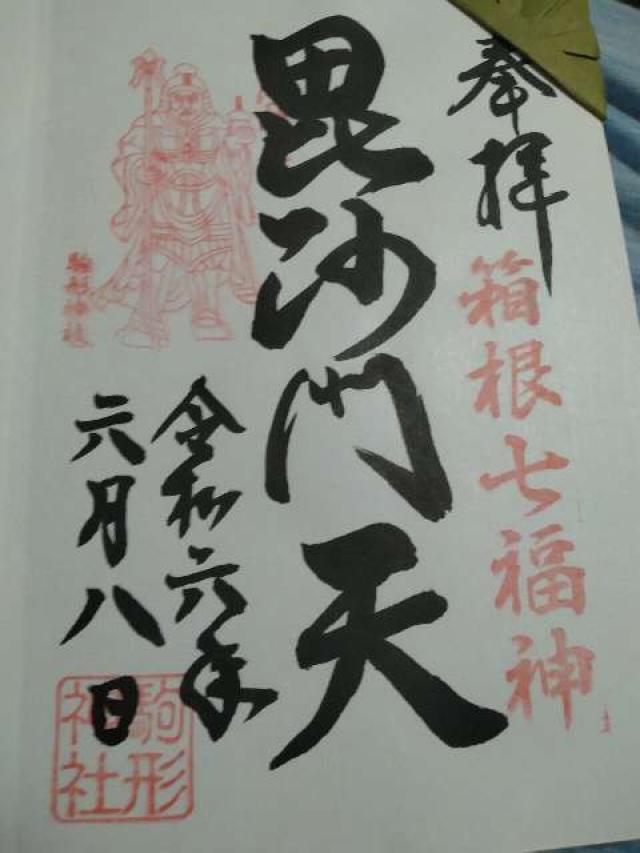 奉拝
箱根七福神
毘沙門天
令和六年
六月八日
駒形神社
駒形神社